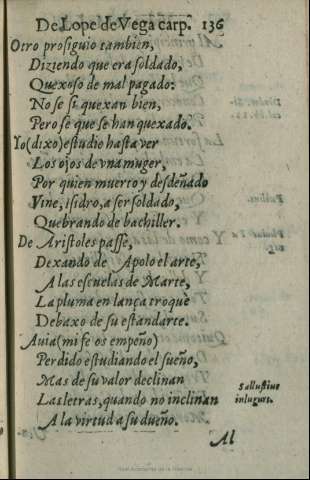 De Lope de Vega carp. 136
Otro prosiguio tambien,
Diziendo que era soldado,
Quexoso de mal pagado:
No se si quexan bien,
Pero se que se han quexado.
Yo (dixo) estudio hasta ver
Los ojos de vna muger,
Por quien muerto y desdeñado
Vine, isidro, a ser soldado,
Quebrando de bachiller.
De Aristoles passè,
Dexando de Apolo el arte,
A las escuelas de Marte,
La pluma en lança troquè
Debaxo de su estandarte.
Auia (mi fè os empeño)
Perdido estudiando el sueño,
Mas de su valor declinan
Las letras, quando no inclinan
A la virtud a su dueño.
Sallustius
in Iugurt.
Al